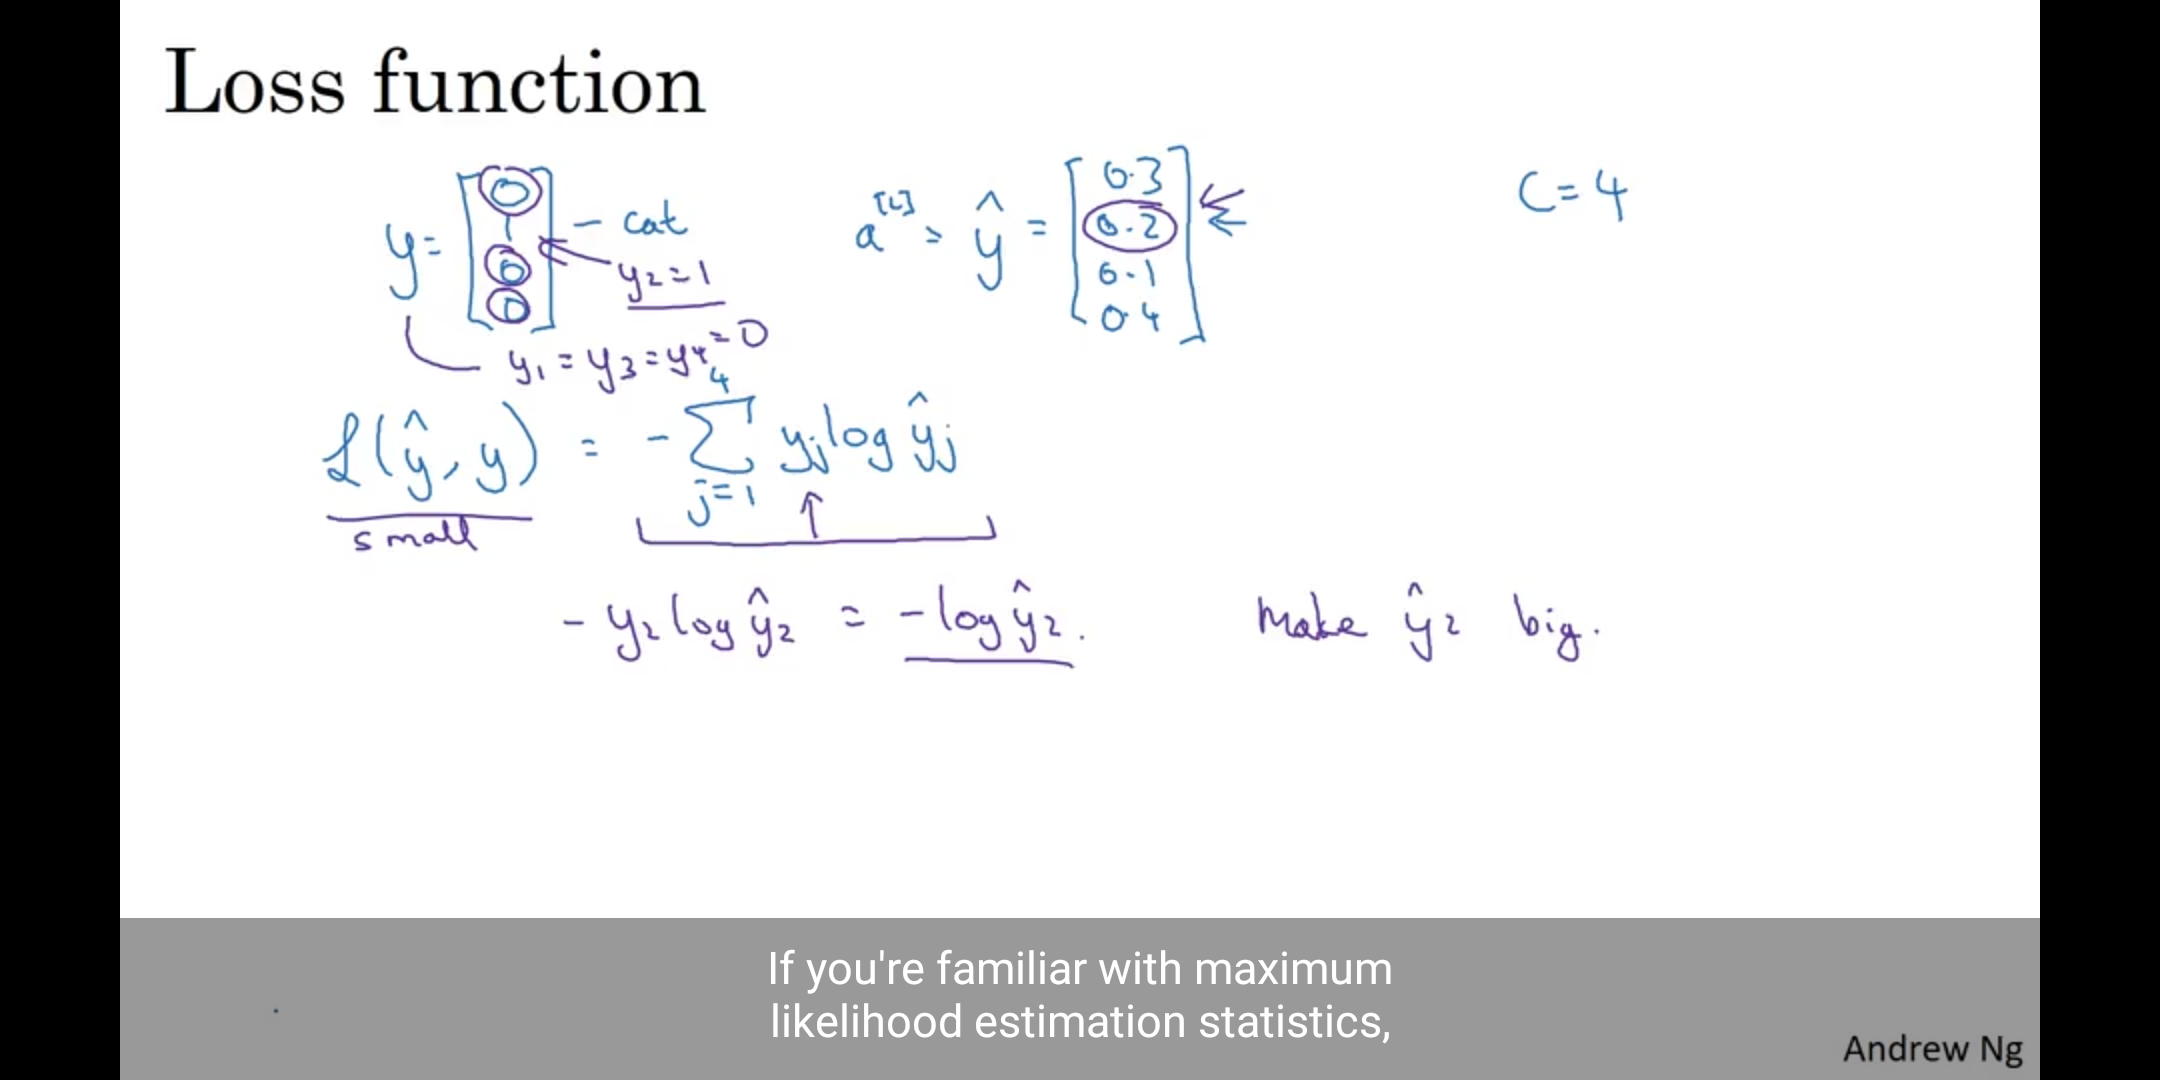 Loss function
y = [0 1 0 0] - cat
y₂ = 1
y₁ = y₃ = y₄ = 0
a^[L] = ŷ = [0.3 0.2 0.1 0.4]
C = 4
L(ŷ, y) = - Σ_{j=1}^{4} y_j log ŷ_j
small
- y₂ log ŷ₂ = - log ŷ₂.
Make ŷ₂ big.
If you're familiar with maximum
likelihood estimation statistics,
Andrew Ng